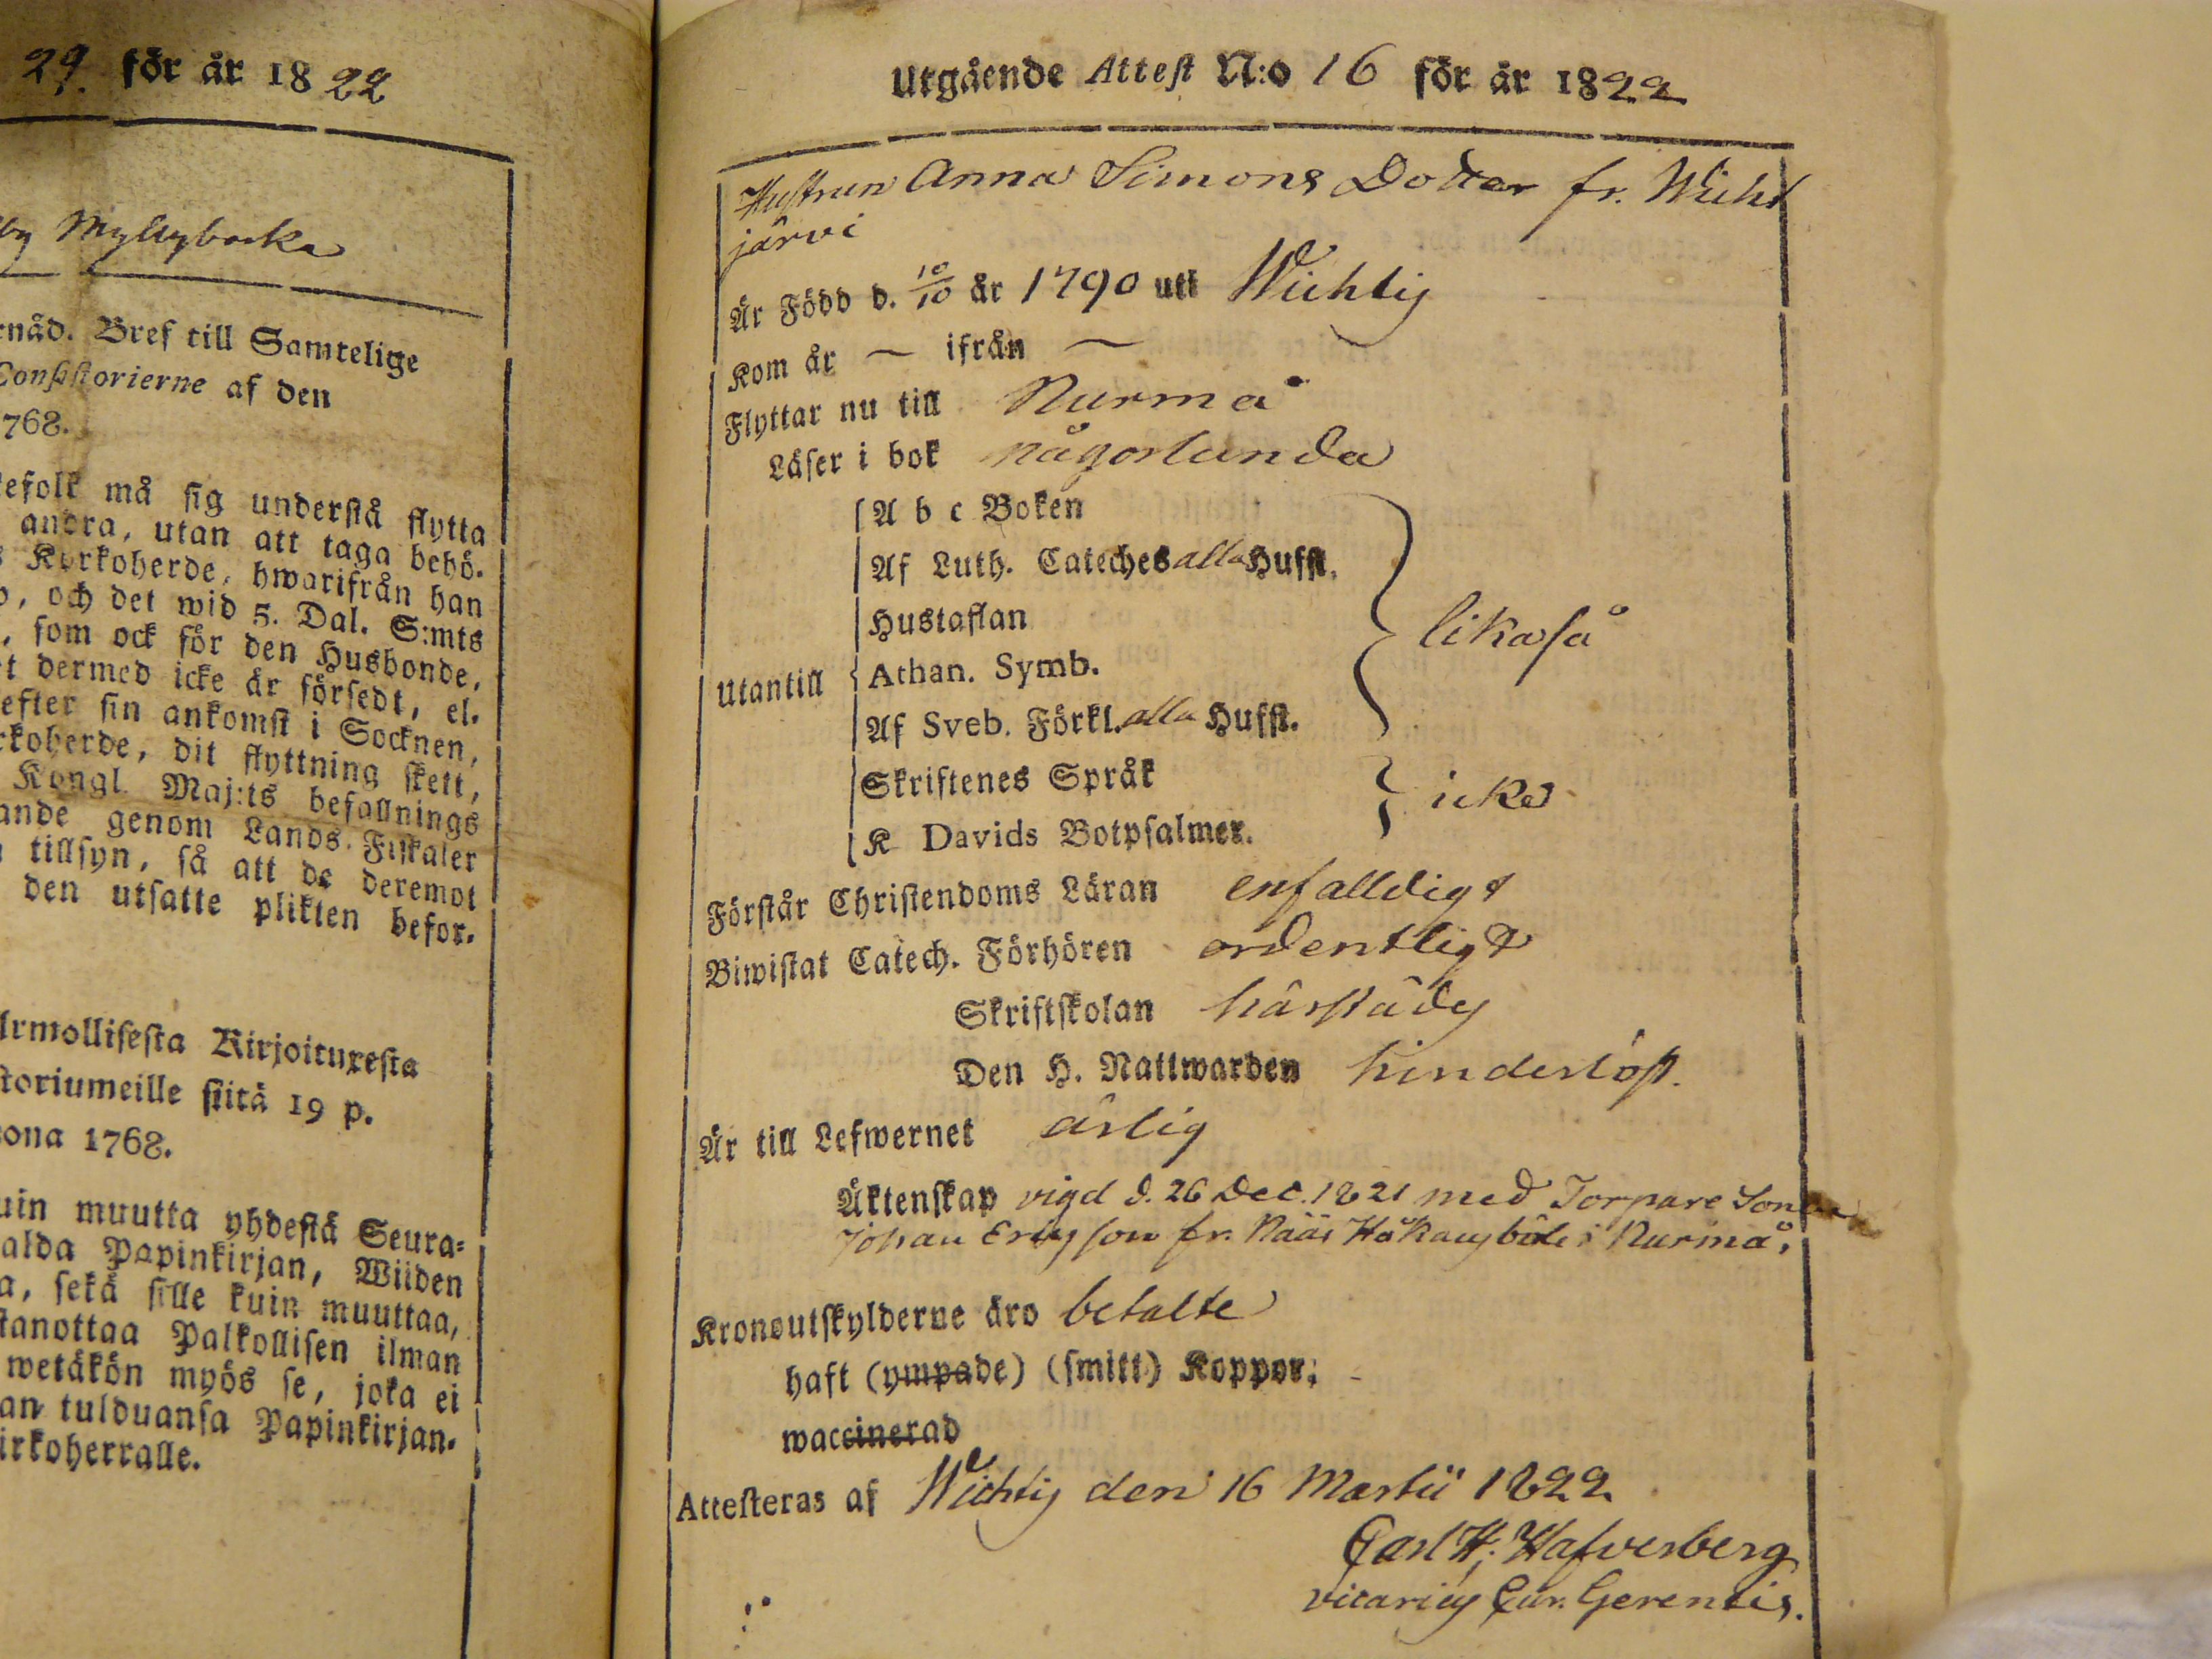 29. för år 1822
by Myllybacka
rnåd. Bref till Samtelige
Consistorierne af den
768.
kefolk må sig understå flytta
andra, utan att taga behö-
s Kyrkoherde, hwarifrån han
o, och det wid 5. Dal. S:mts
, som ock för den Husbonde,
t dermed icke är försedt, el-
efter sin ankomst i Socknen,
rkoherde, dit flyttning skett,
Kongl. Maj:ts befallnings
ande genom Lands-Fiskaler
tillsyn, så att de deremot
den utsatte plikten befor-
Armollisesta Kirjoituxesta
storiumeille siitä 19 p.
ona 1768.
uin muutta yhdestä Seura-
alda Papinkirjan, Wiiden
a, sekä sille kuin muuttaa,
tanottaa Palkollisen ilman
wetäkön myös se, joka ei
an tulduansa Papinkirjan-
irkoherralle.
Utgående Attest N:o 16 för år 1822
Hustrun Anna Simons Dotter fr. Wicht
järvi
Är Född d. 10/10 år 1790 uti Wichtis
Kom år — ifrån —
Flyttar nu till Nurmå
Läser i bok någorlunda
Utantill
A b c Boken
Af Luth. Cateches alla Hufst.
Hustaflan
Athan. Symb.
Af Sveb. Förkl. alla Hufst.
likaså
Skriftenes Språk
K Davids Botpsalmer.
icke
Förstår Christendoms Läran enfalldigt
Biwistat Catech. Förhören ordentligt
Skriftskolan härstädes
Den H. Nattwarden hinderlöst.
Är till Lefwernet ärlig
Äktenskap vigd d. 26 Dec. 1821 med Torpare Sonen
Johan Ericsson fr. Nääs Håkansböle i Nurmå.
Kronoutskylderne äro betalte
haft (ympade) (smitt) Koppor;
waccinerad
Attesteras af Wichtis den 16 Martii 1822.
Carl H: Hafverberg
vicarius Cur. Gerentis.